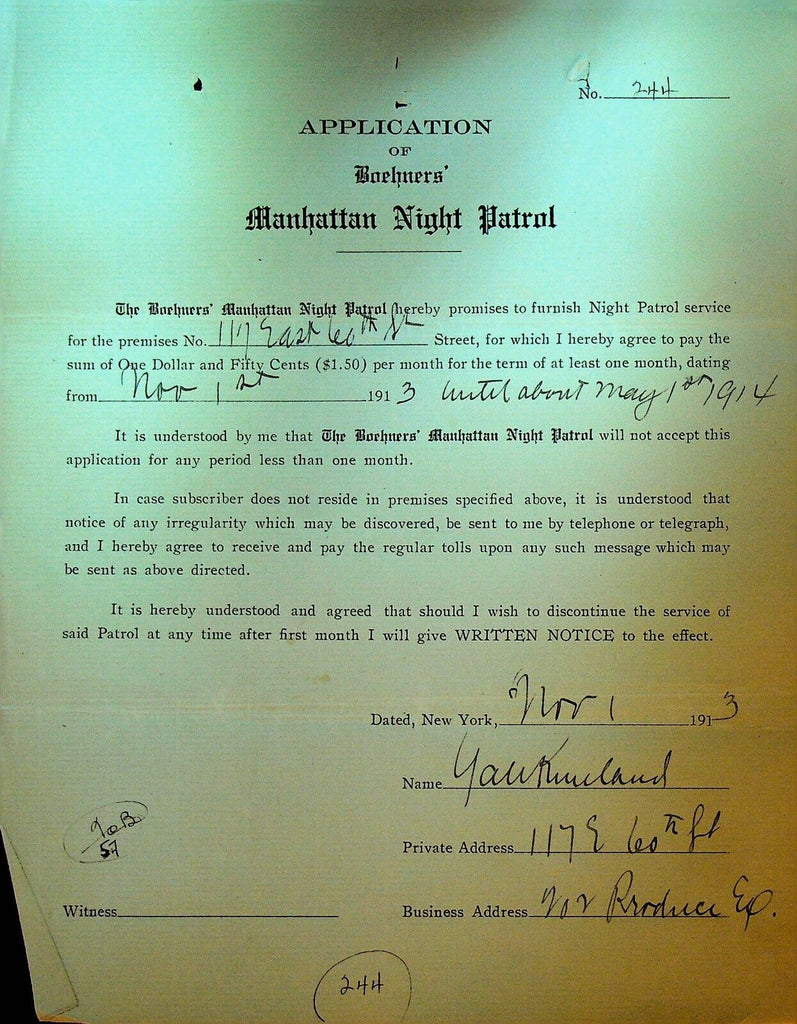 No. 244
APPLICATION
OF
Boehners'
Manhattan Night Patrol
The Boehners' Manhattan Night Patrol hereby promises to furnish Night Patrol service
for the premises No. 117 East 60th St Street, for which I hereby agree to pay the
sum of One Dollar and Fifty Cents ($1.50) per month for the term of at least one month, dating
from Nov 1st 1913 until about May 1st 1914
It is understood by me that The Boehners' Manhattan Night Patrol will not accept this
application for any period less than one month.
In case subscriber does not reside in premises specified above, it is understood that
notice of any irregularity which may be discovered, be sent to me by telephone or telegraph,
and I hereby agree to receive and pay the regular tolls upon any such message which may
be sent as above directed.
It is hereby understood and agreed that should I wish to discontinue the service of
said Patrol at any time after first month I will give WRITTEN NOTICE to the effect.
Dated, New York, Nov 1 1913
Name Yale Kneeland
Private Address 117 E 60th St
57
Business Address Produce Ex.
Witness
244